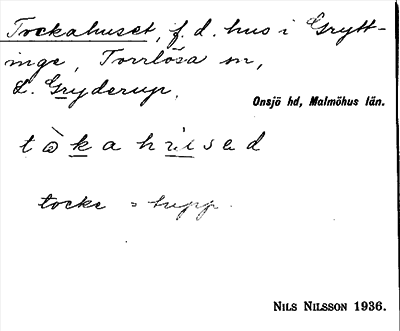 Tockahuset, f. d. hus i Grytt-
inge, Torrlösa sn,
L. Gryderup.
Onsjö hd, Malmöhus län.
tocke = tupp.
NILS NILSSON 1936.